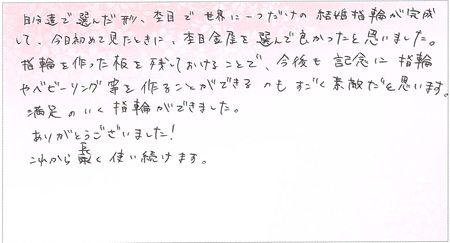 自分達で選んだ形、杢目で世界に一つだけの結婚指輪が完成
して、今日初めて見たときに、杢目金屋を選んで良かったと思いました。
指輪を作った板を残しておけることで、今後も記念に指輪
やベビーリング等を作ることができるのもすごく素敵だと思います。
満足のいく指輪ができました。
ありがとうございました!
これから長く使い続けます。